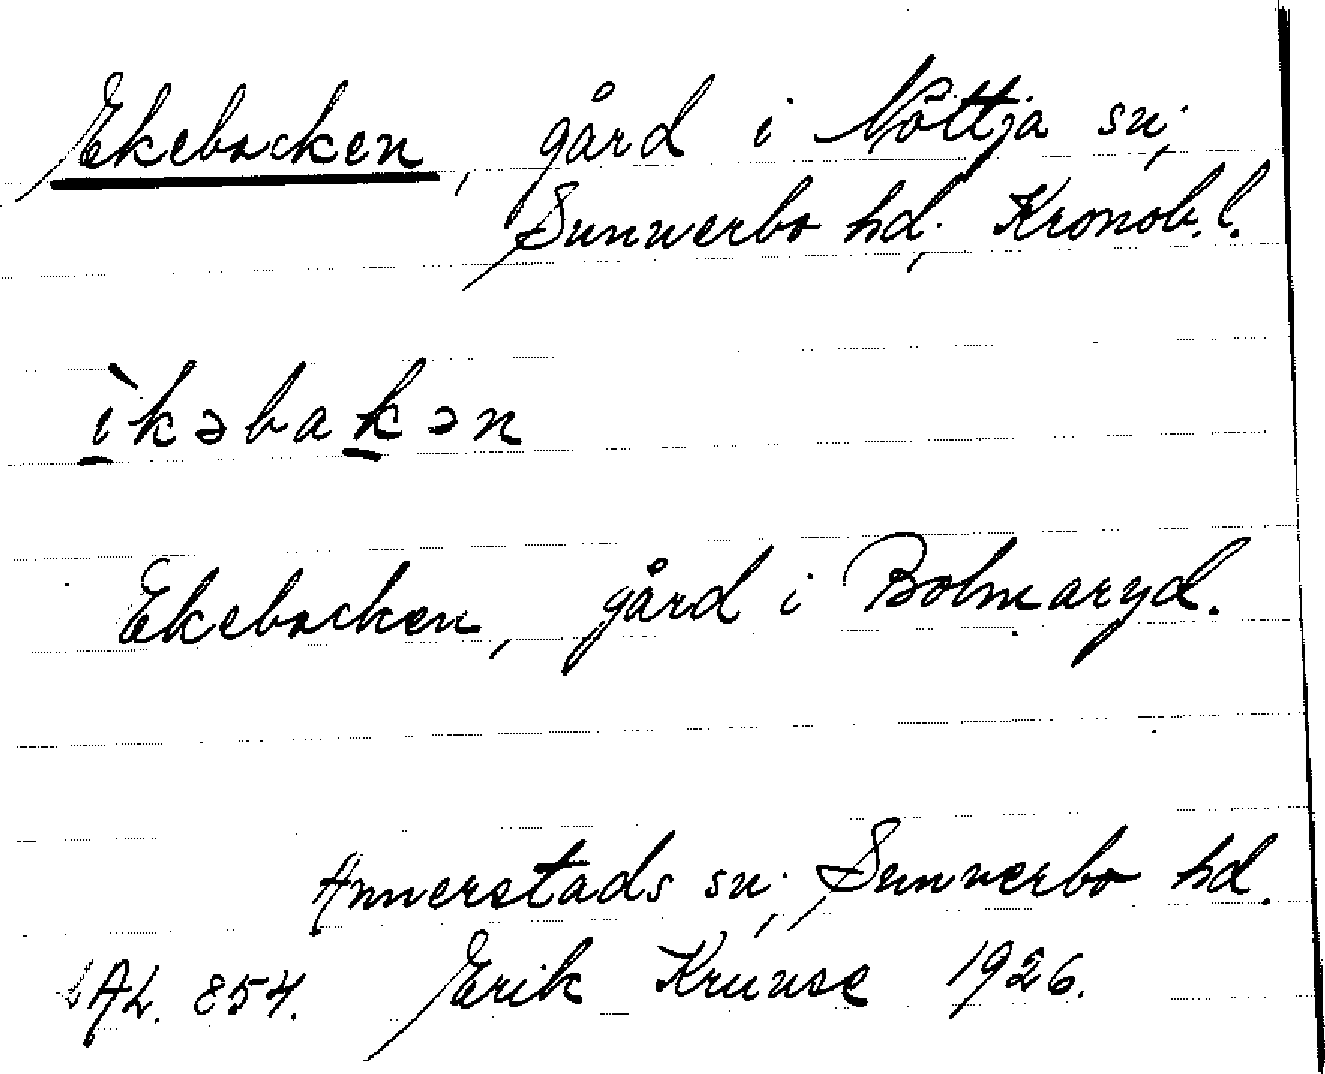 Ekebacken, gård i Nöttja sn.,
Sunnerbo hd., Kronob. l.
ìkəbakən
Ekebacken, gård i Bolmaryd.
Annerstads sn., Sunnerbo hd.
AL. 854. Erik Kruuse 1926.